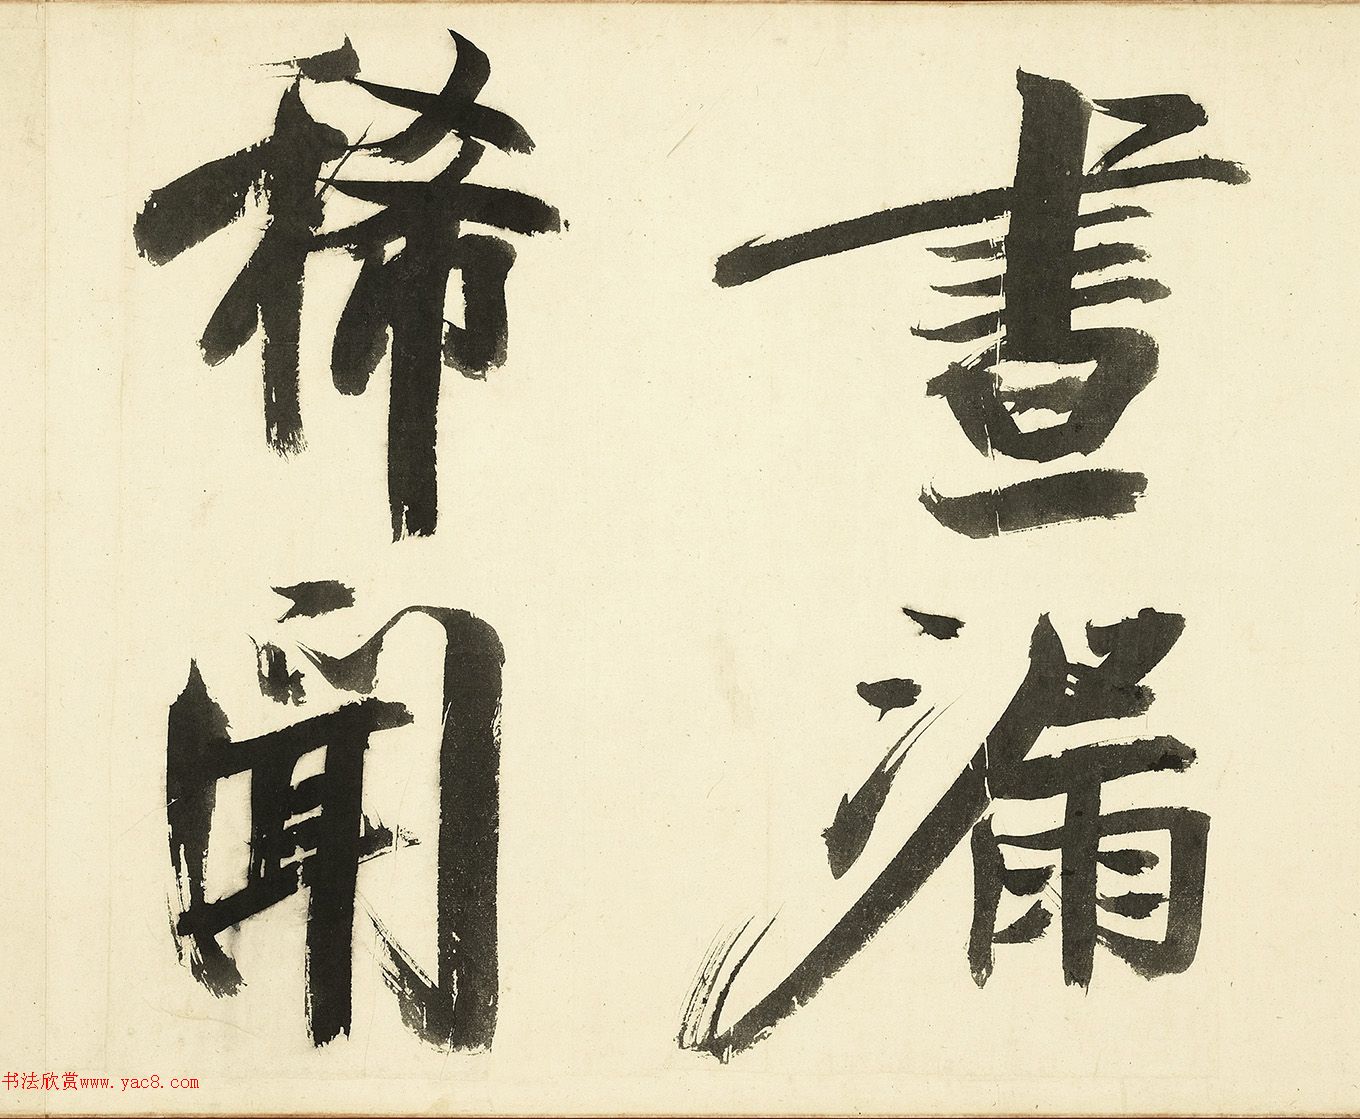 晝漏
稀聞
书法欣赏www.yac8.com